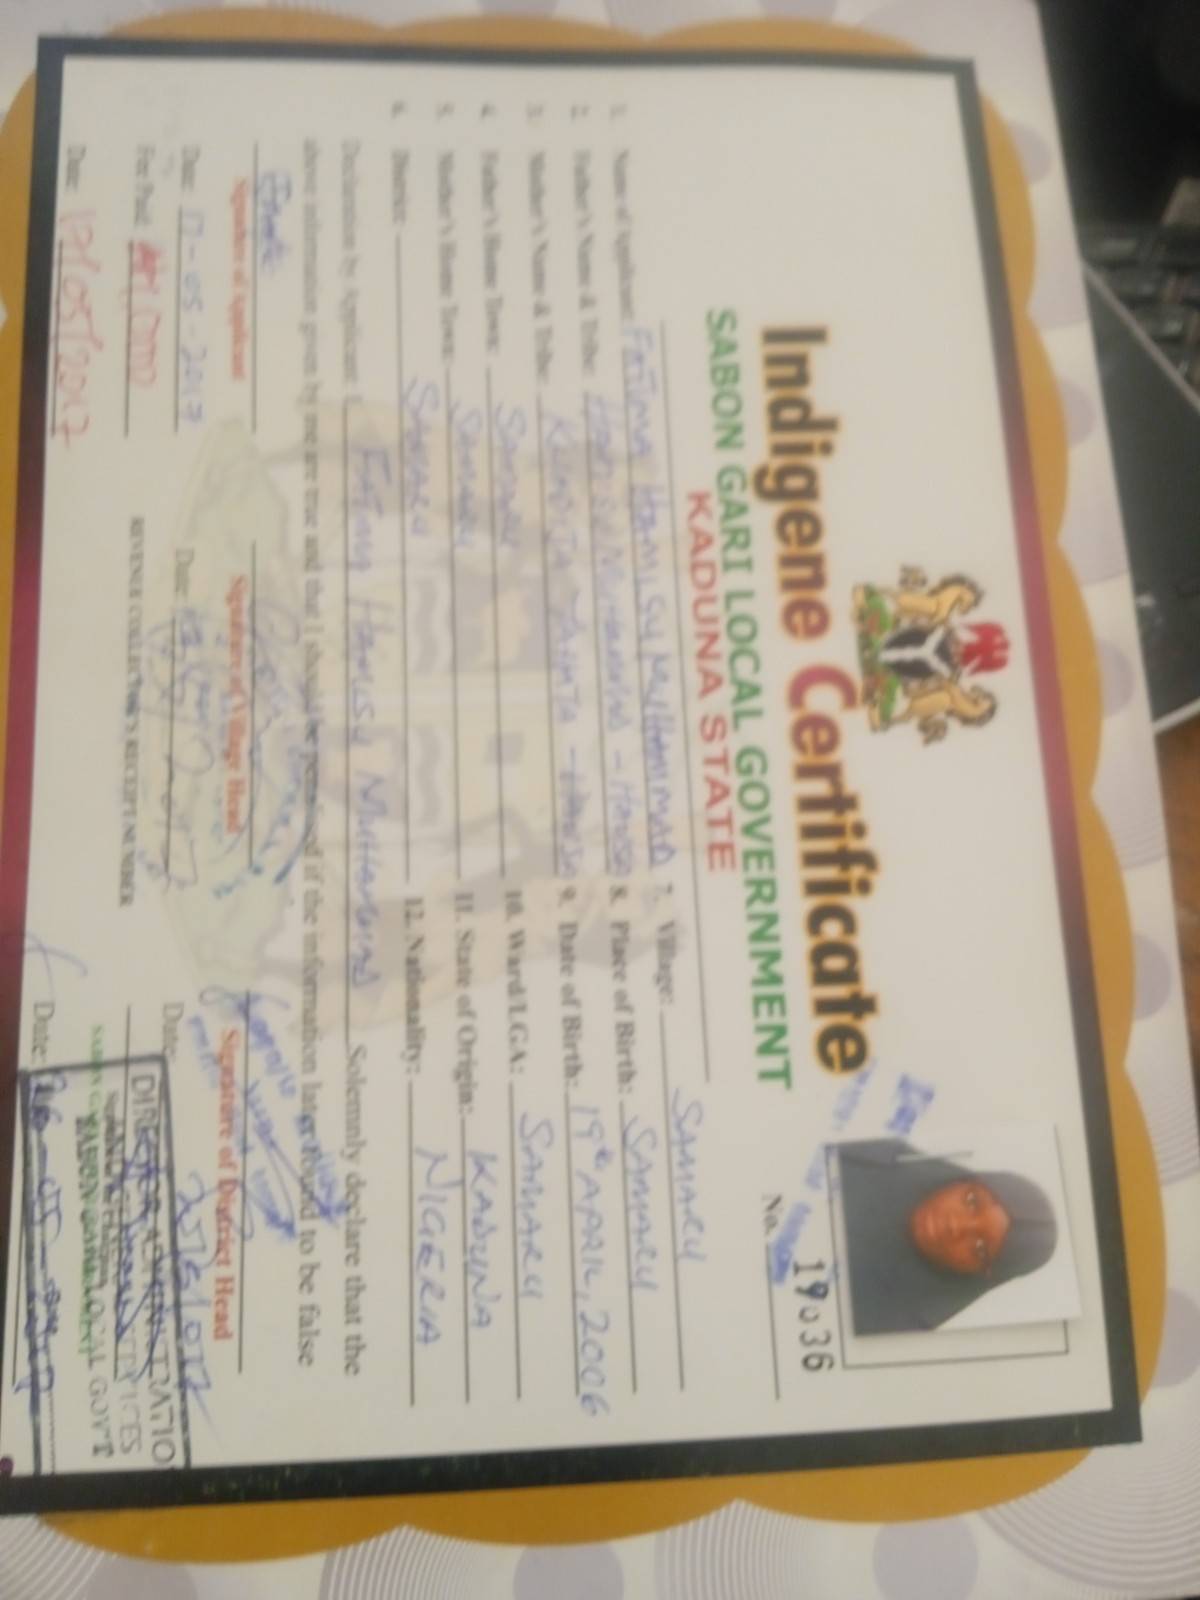 Indigene Certificate
SABON GARI LOCAL GOVERNMENT
KADUNA STATE
No. 19036
1. Name of Applicant: FATIMA HAMISU MUHAMMAD
2. Father's Name & Tribe: HAMISU MUHAMMAD - HAUSA
3. Mother's Name & Tribe: - HAUSA
4. Father's Home Town: SAMARU
5. Mother's Home Town: SAMARU
6. District: SAMARU
7. Village: SAMARU
8. Place of Birth: SAMARU
9. Date of Birth: 19th APRIL, 2006
10. Ward/LGA: SAMARU
11. State of Origin: KADUNA
12. Nationality: NIGERIA
Declaration by Applicant: I, Fatima Hamisu Muhammad Solemnly declare that the
above information given by me are true and that I should be penalised if the information later found to be false
Signature of Applicant
Signature of Village Head
Signature of District Head
Date: 17-05-2017
Date:
Date:
Fee Paid:
REVENUE COLLECTOR'S RECEIPT NUMBER
DIRECTOR ADMINISTRATIO
SABON GARI LOCAL GOVT
Date: 17/05/2017
Date: